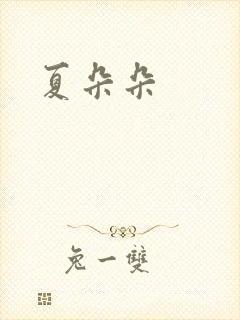 夏朵朵
兔一雙